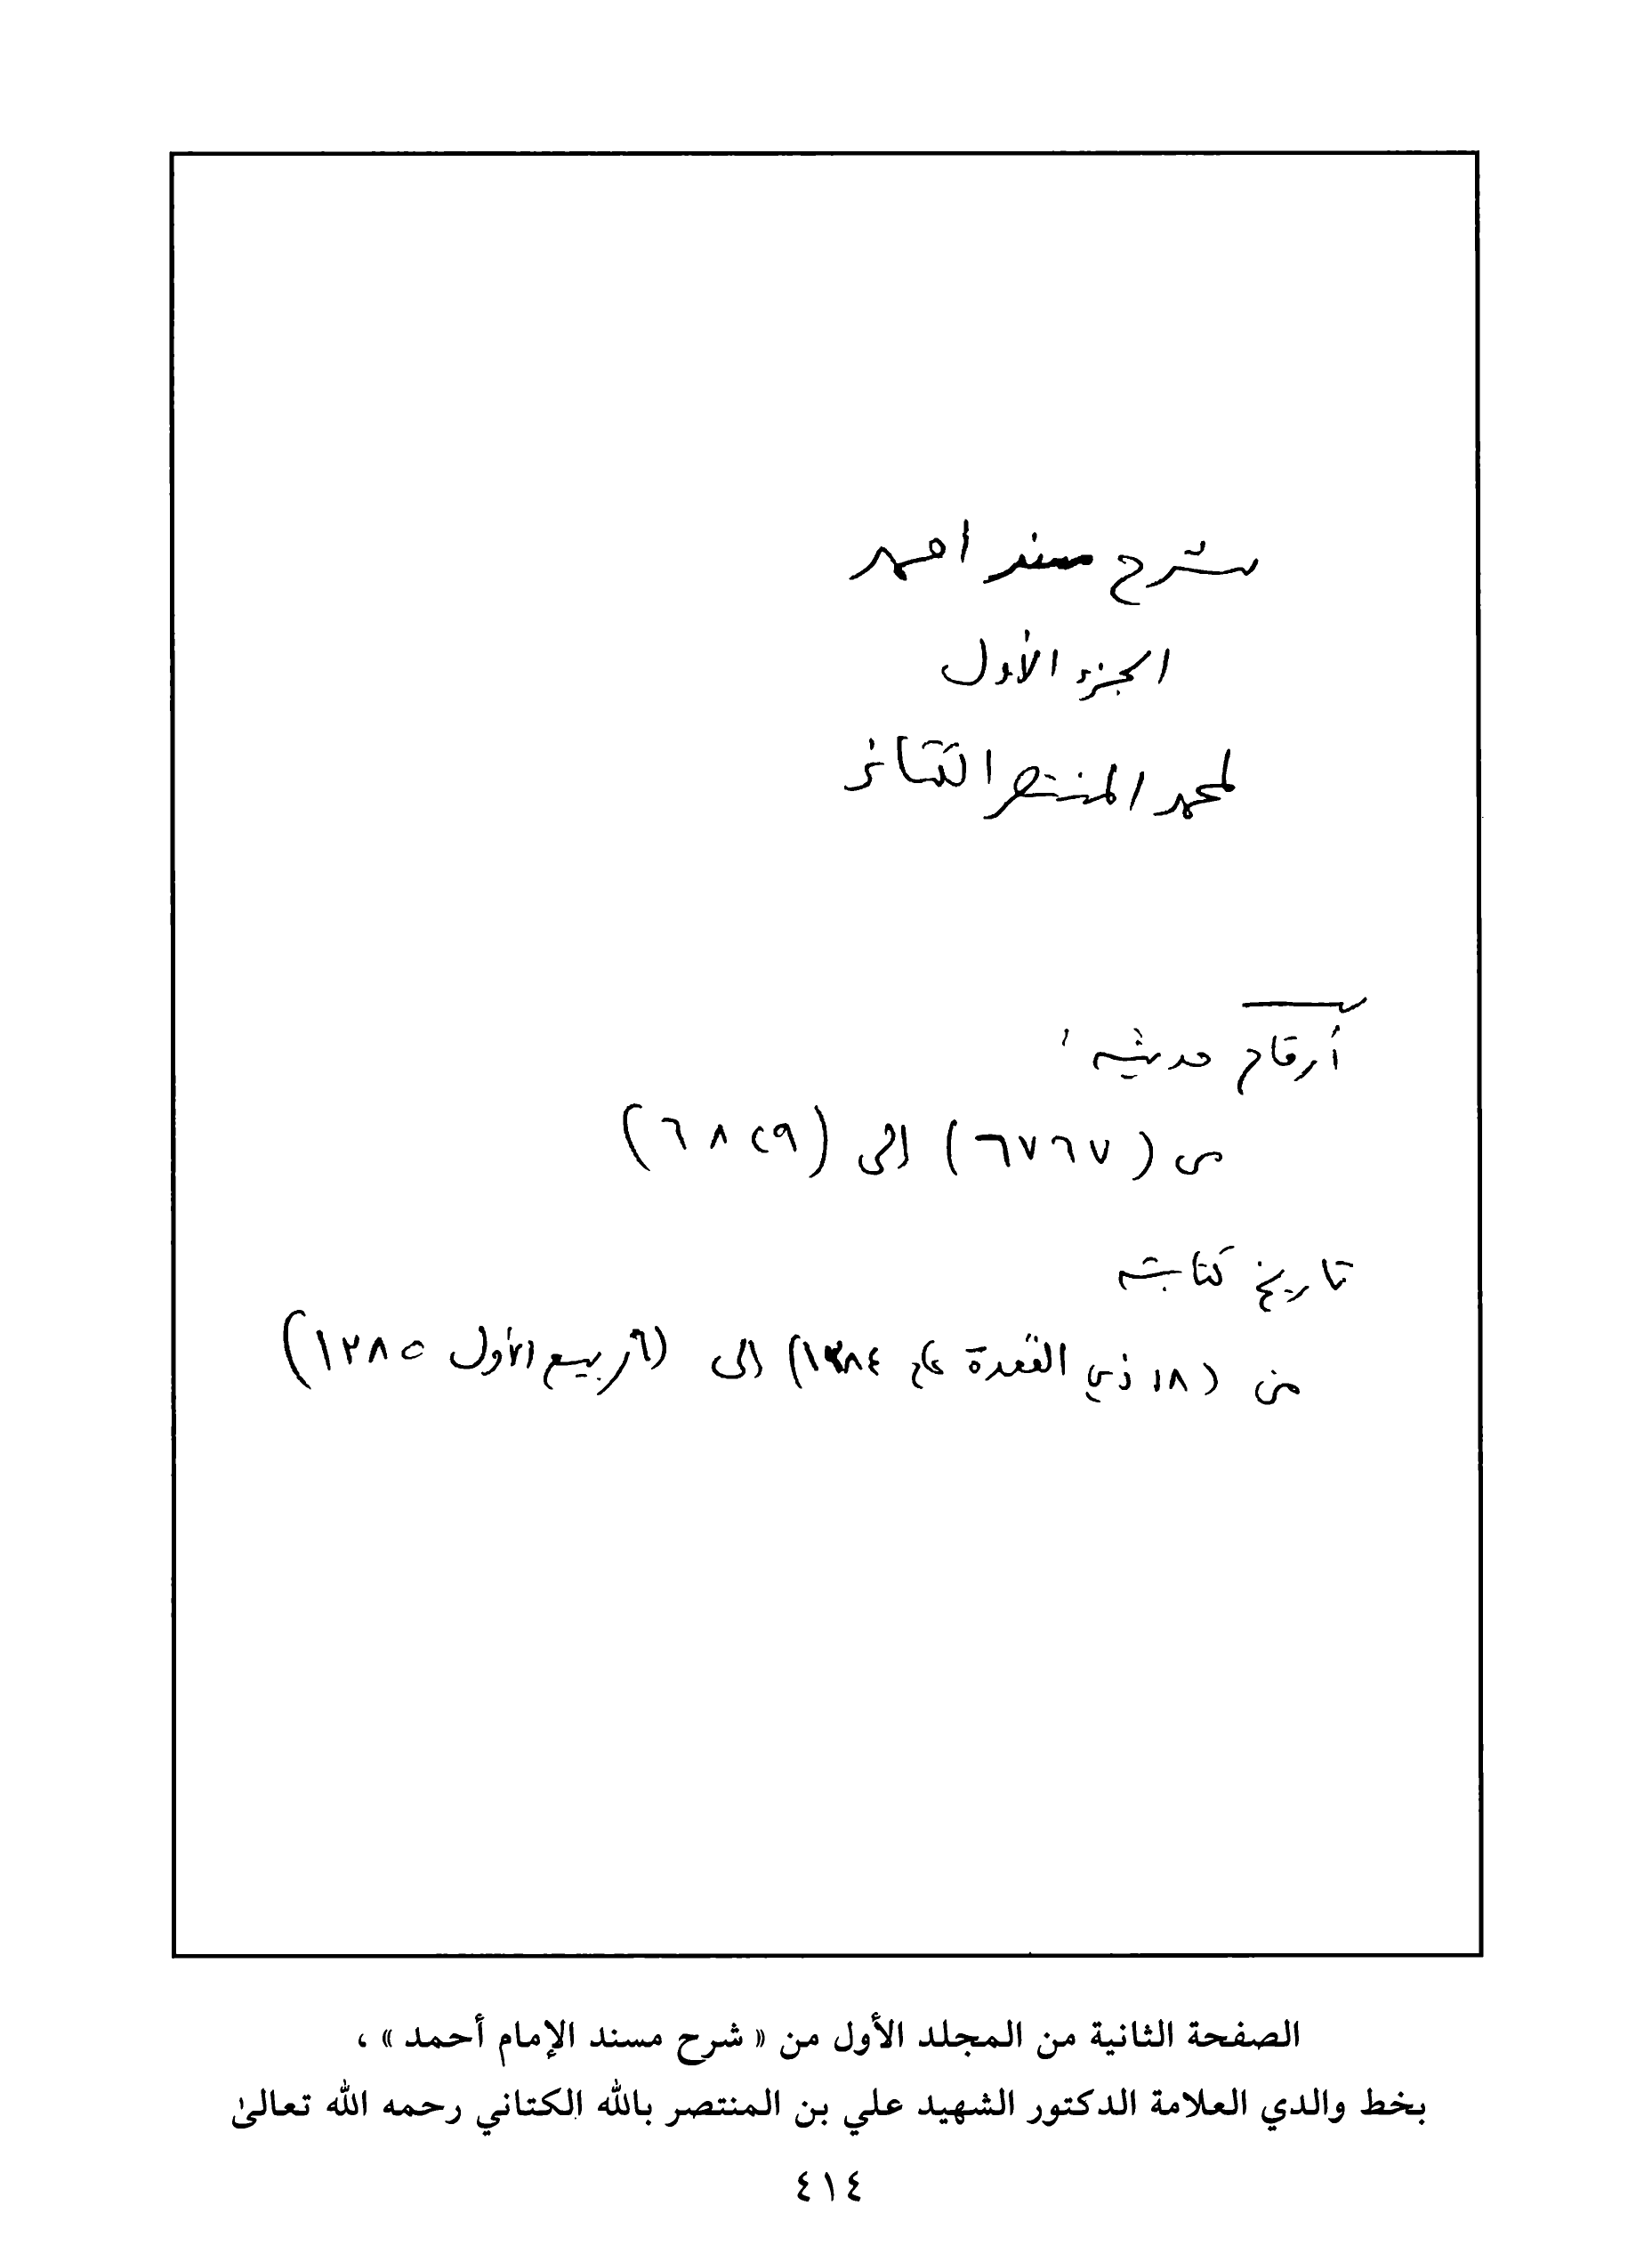 شرح مسند احمد
الجزء الأول
لمحمد المنتصر الكتاني
أرقام حديثه :
من (٦٧٦٧) إلى (٦٨٢٩)
تاريخ كتابته
من (١٨ ذي القعدة عام ١٣٨٤) إلى (٦ ربيع الأول ١٣٨٥)
الصفحة الثانية من المجلد الأول من « شرح مسند الإمام أحمد » ،
بخط والدي العلامة الدكتور الشهيد علي بن المنتصر بالله الكتاني رحمه الله تعالىٰ
٤١٤